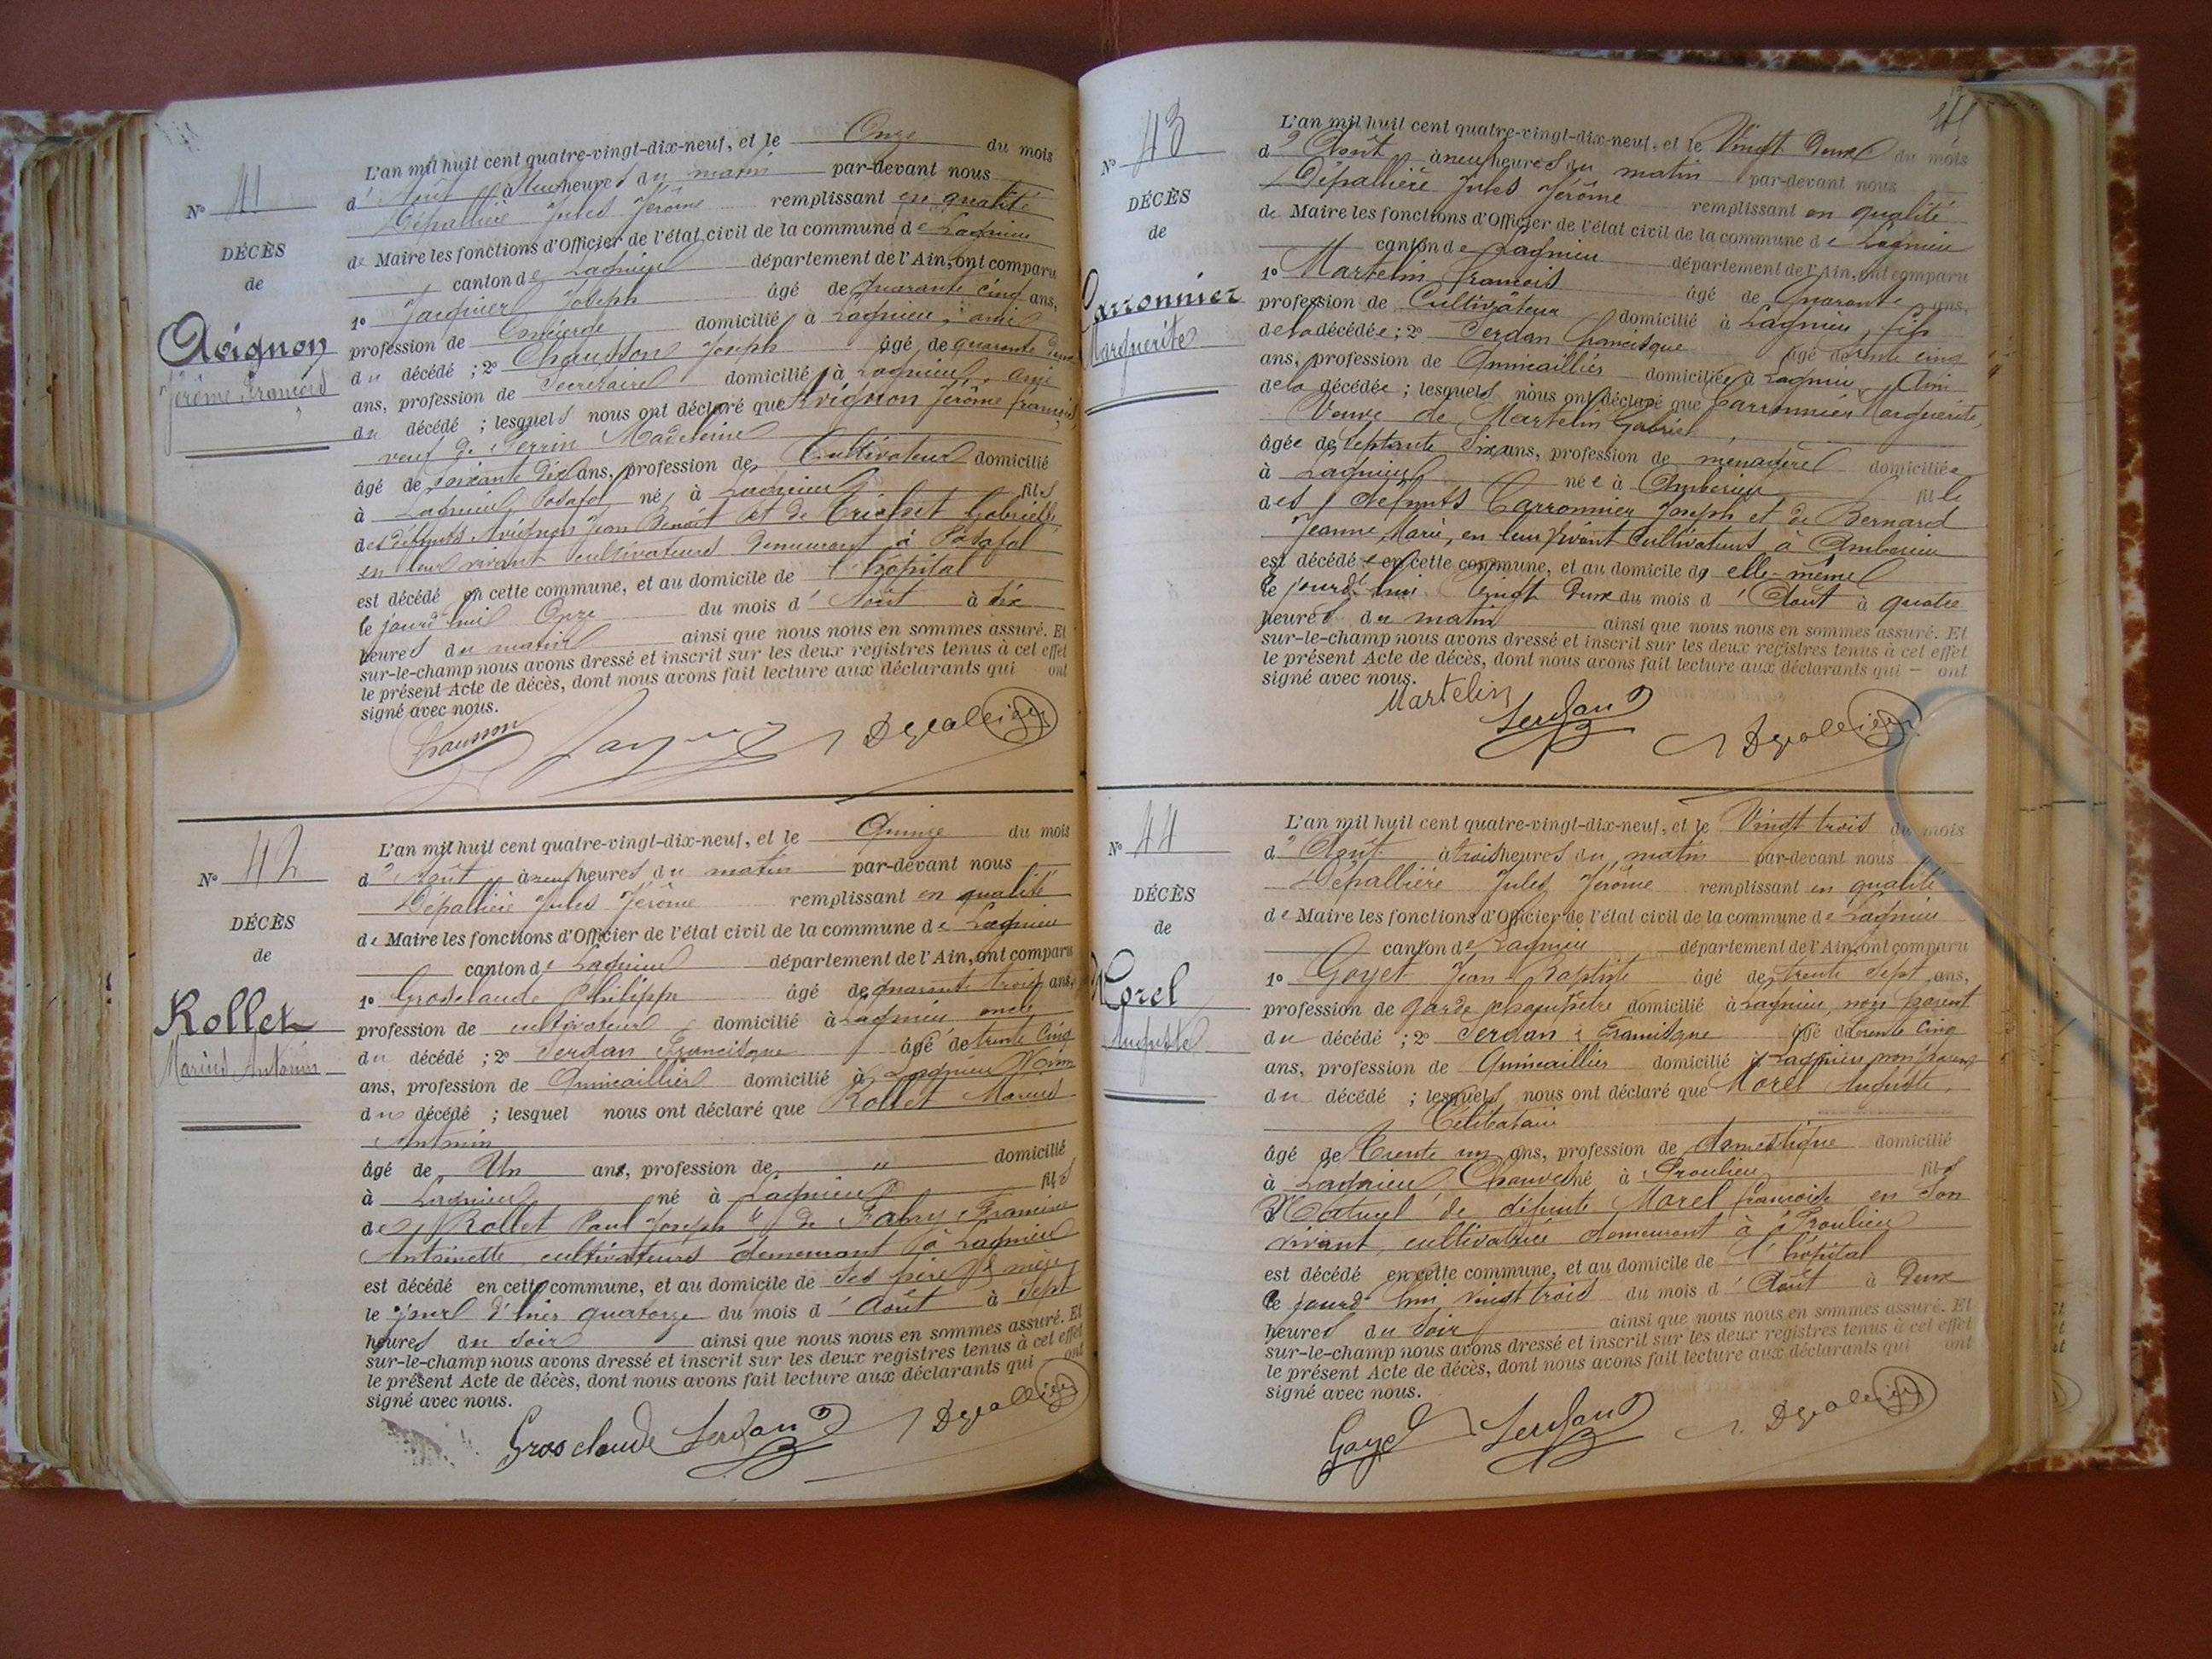 N° 41
DÉCÈS
de
Avignon
Jérôme François
L'an mil huit cent quatre-vingt-dix-neuf, et le Onze du mois
d'Août à Neuf heures du matin par-devant nous
Dépallière Jules Jérôme remplissant en qualité
de Maire les fonctions d'Officier de l'état civil de la commune de Lagnieu
canton de Lagnieu département de l'Ain, ont comparu
1° Jacquier Joseph âgé de quarante cinq ans,
profession de Concierge domicilié à Lagnieu, ami
du décédé ; 2° Chausson Joseph âgé de quarante deux
ans, profession de Secrétaire domicilié à Lagnieu, ami
du décédé ; lesquels nous ont déclaré que Avignon Jérôme François,
veuf de Perrin Madeleine
âgé de soixante dix ans, profession de Cultivateur domicilié
à Lagnieu, Posafol né à Lagnieu fils
des défunts Avignon Jean Benoît et de Trichet Gabrielle
en leur vivant cultivateurs demeurant à Posafol
est décédé en cette commune, et au domicile de l'hôpital
le jourd'hui Onze du mois d'Août à six
heures du matin ainsi que nous nous en sommes assuré. Et
sur-le-champ nous avons dressé et inscrit sur les deux registres tenus à cet effet
le présent Acte de décès, dont nous avons fait lecture aux déclarants qui ont
signé avec nous.
Chausson Jacquier Dépallière
N° 42
DÉCÈS
de
Rollet
Marius Antonin
L'an mil huit cent quatre-vingt-dix-neuf, et le Quinze du mois
d'Août à neuf heures du matin par-devant nous
Dépallière Jules Jérôme remplissant en qualité
de Maire les fonctions d'Officier de l'état civil de la commune de Lagnieu
canton de Lagnieu département de l'Ain, ont comparu
1° Grosclaude Philippe âgé de quarante trois ans,
profession de cultivateur domicilié à Lagnieu oncle
du décédé ; 2° Serdan Francisque âgé de trente cinq
ans, profession de Quincaillier domicilié à Lagnieu Voisin
du décédé ; lesquel nous ont déclaré que Rollet Marius
Antonin
âgé de Un ans, profession de " domicilié
à Lagnieu né à Lagnieu fils
de Rollet Paul Joseph et de Fabry Francine
Antoinette cultivateurs demeurant à Lagnieu
est décédé en cette commune, et au domicile de ses père et mère
le jour d'hier quatorze du mois d'Août à sept
heures du soir ainsi que nous nous en sommes assuré. Et
sur-le-champ nous avons dressé et inscrit sur les deux registres tenus à cet effet
le présent Acte de décès, dont nous avons fait lecture aux déclarants qui ont
signé avec nous.
Grosclaude Serdan Dépallière
N° 43
DÉCÈS
de
Carronnier
Marguerite
L'an mil huit cent quatre-vingt-dix-neuf, et le Vingt deux du mois
d'Août à neuf heures du matin par-devant nous
Dépallière Jules Jérôme remplissant en qualité
de Maire les fonctions d'Officier de l'état civil de la commune de Lagnieu
canton de Lagnieu département de l'Ain, ont comparu
1° Martelin François âgé de Quarante ans,
profession de Cultivateur domicilié à Lagnieu, fils
de la décédée ; 2° Serdan Francisque âgé de trente cinq
ans, profession de Quincaillier domicilié à Lagnieu, Ami
de la décédée ; lesquels nous ont déclaré que Carronnier Marguerite,
Veuve de Martelin Gabriel
âgée de septante six ans, profession de ménagère domiciliée
à Lagnieu née à Ambérieu fille
des défunts Carronnier Joseph et de Bernard
Jeanne Marie, en leur vivant Cultivateurs à Ambérieu
est décédée en cette commune, et au domicile de elle-même
le jourd'hui Vingt deux du mois d'Août à quatre
heures du matin ainsi que nous nous en sommes assuré. Et
sur-le-champ nous avons dressé et inscrit sur les deux registres tenus à cet effet
le présent Acte de décès, dont nous avons fait lecture aux déclarants qui — ont
signé avec nous.
Martelin Serdan Dépallière
N° 44
DÉCÈS
de
Morel
Auguste
L'an mil huit cent quatre-vingt-dix-neuf, et le Vingt trois du mois
d'Août à trois heures du matin par-devant nous
Dépallière Jules Jérôme remplissant en qualité
de Maire les fonctions d'Officier de l'état civil de la commune de Lagnieu
canton de Lagnieu département de l'Ain, ont comparu
1° Goyet Jean Baptiste âgé de trente sept ans,
profession de garde champêtre domicilié à Lagnieu, non parent
du décédé ; 2° Serdan Francisque âgé de trente cinq
ans, profession de Quincaillier domicilié à Lagnieu non parent
du décédé ; lesquels nous ont déclaré que Morel Auguste,
Célibataire
âgé de trente un ans, profession de domestique domicilié
à Lagnieu né à Proulieu fils
Naturel de défunte Morel Françoise en son
vivant, cultivatrice demeurant à Proulieu
est décédé en cette commune, et au domicile de l'hôpital
le jourd'hui vingt trois du mois d'Août à deux
heures du soir ainsi que nous nous en sommes assuré. Et
sur-le-champ nous avons dressé et inscrit sur les deux registres tenus à cet effet
le présent Acte de décès, dont nous avons fait lecture aux déclarants qui ont
signé avec nous.
Goyet Serdan Dépallière